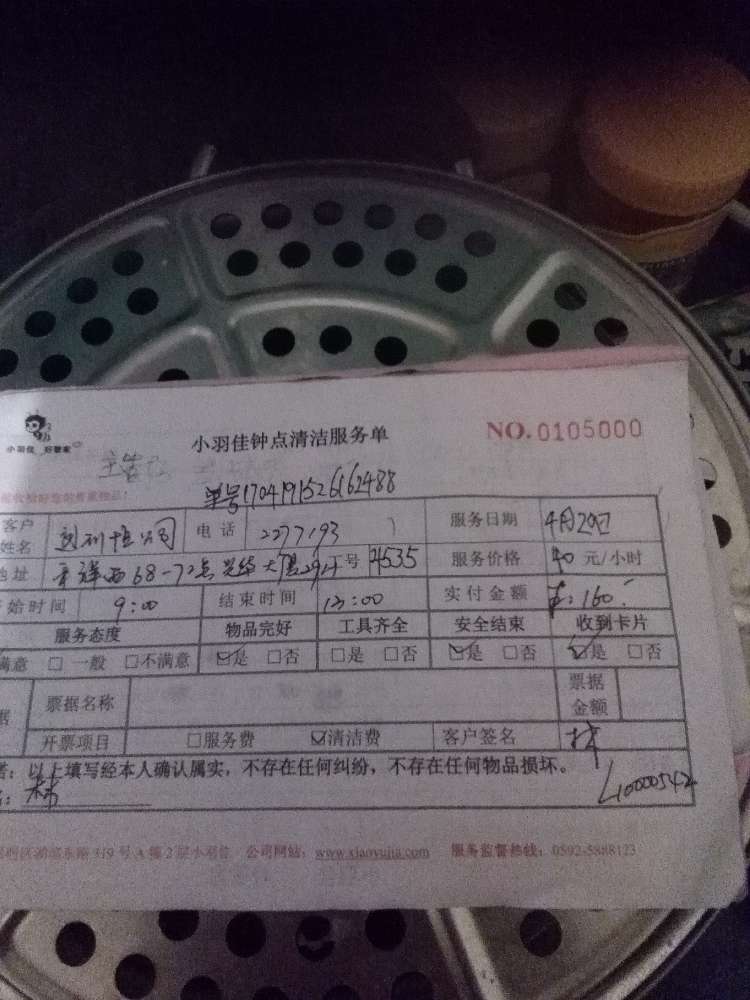 小羽佳 好管家
小羽佳钟点清洁服务单
NO.0105000
单号1704191526162488
客户姓名 公司 电话 2277193 服务日期 4月29日
地址 68-72 大厦 工号 4535 服务价格 40 元/小时
始时间 9:00 结束时间 13:00 实付金额 160
服务态度 物品完好 工具齐全 安全结束 收到卡片
满意 □一般 □不满意 ☑是 □否 □是 □否 ☑是 □否 ☑是 □否
据 票据名称 票据金额
开票项目 □服务费 ☑清洁费 客户签名 林
：以上填写经本人确认属实，不存在任何纠纷，不存在任何物品损坏。
林 L10000542
东路319号A幢2层小羽佳 公司网站：www.xiaoyujia.com 服务监督热线：0592-5888123